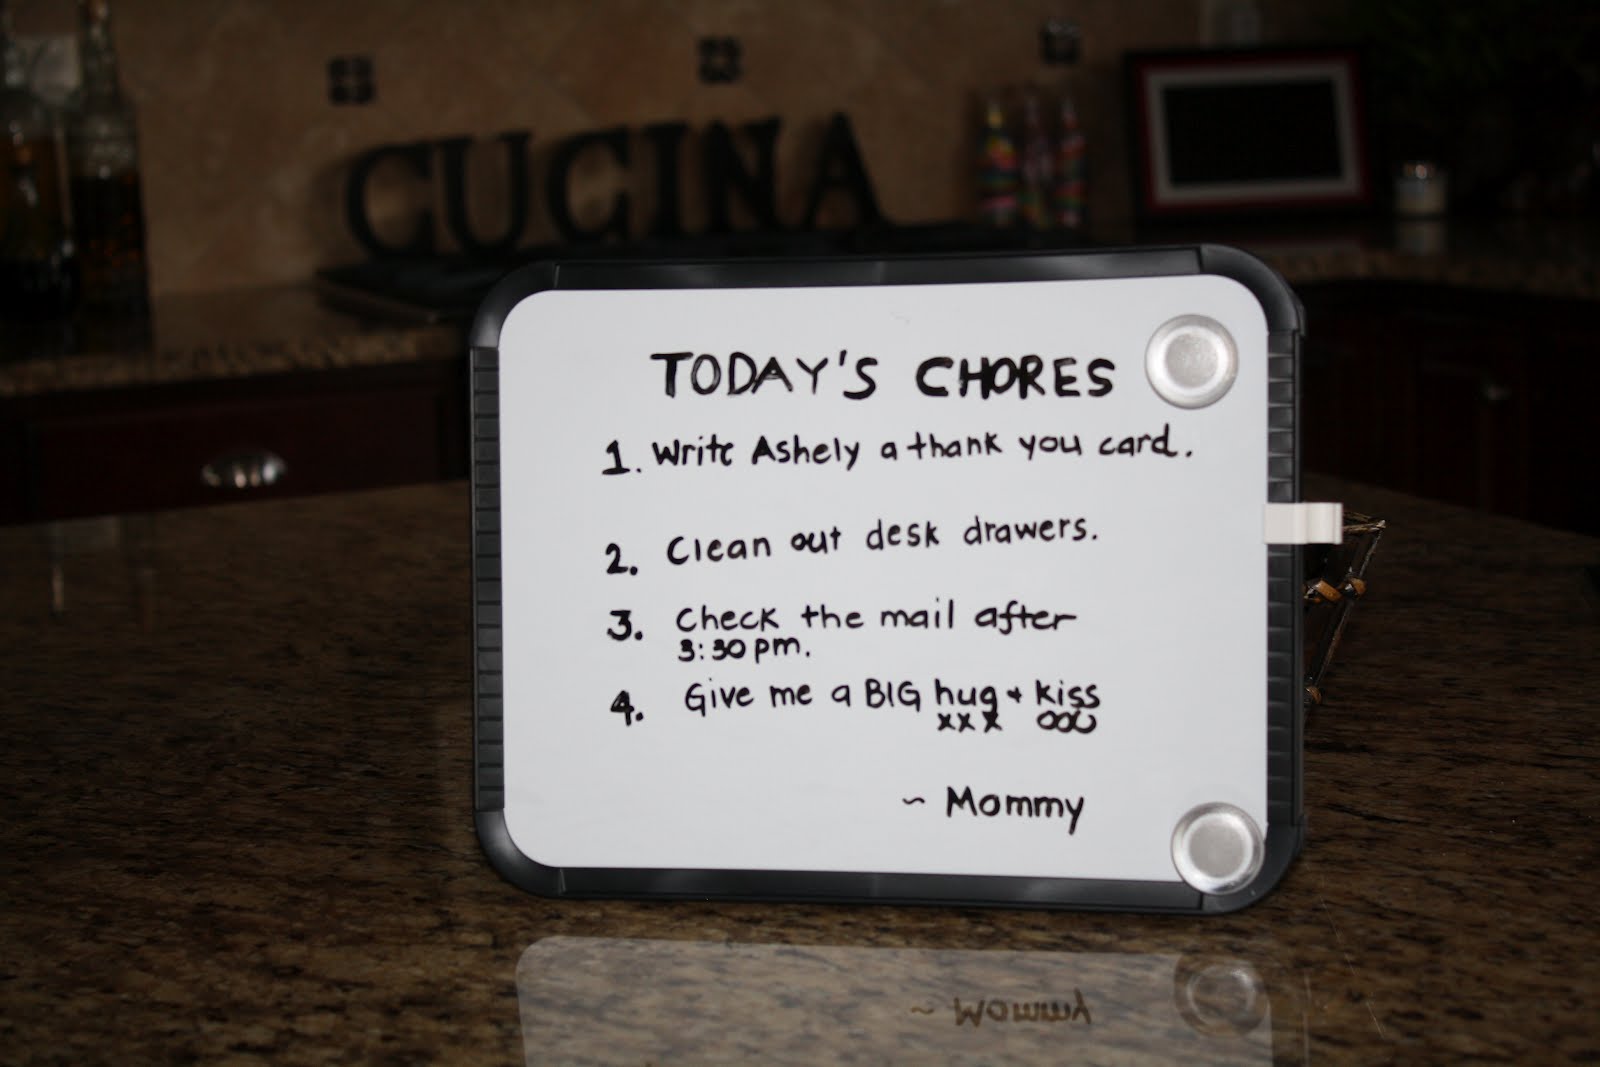 CUCINA
TODAY'S CHORES
1. Write Ashely a thank you card.
2. Clean out desk drawers.
3. Check the mail after
3:30 pm.
4. Give me a BIG hug + kiss
xxx ooo
~ Mommy